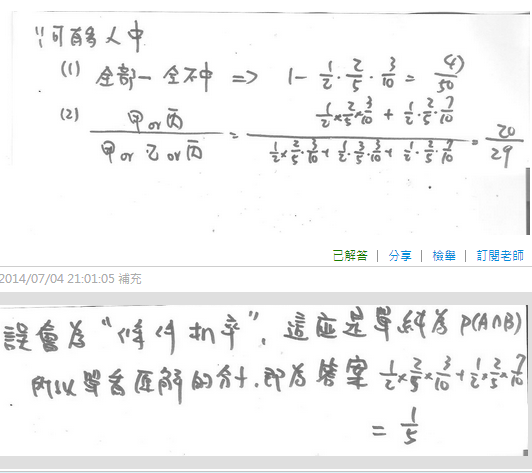 ∵可有多人中
(1) 全部一全不中 => 1- 1/2 · 2/5 · 3/10 = 47/50
(2) 甲or丙 / 甲or乙or丙 = (1/2×2/5×3/10 + 1/2·2/5·7/10) / (1/2×2/5·3/10 + 1/2·3/5·3/10 + 1/2·2/5·7/10) = 20/29
已解答 | 分享 | 檢舉 | 訂閱老師
2014/07/04 21:01:05 補充
誤會為 "條件机率", 這應是單純為 P(A∩B)
所以單看 的分子,即為答案 1/2×2/5×3/10+1/2×2/5×7/10
= 1/5